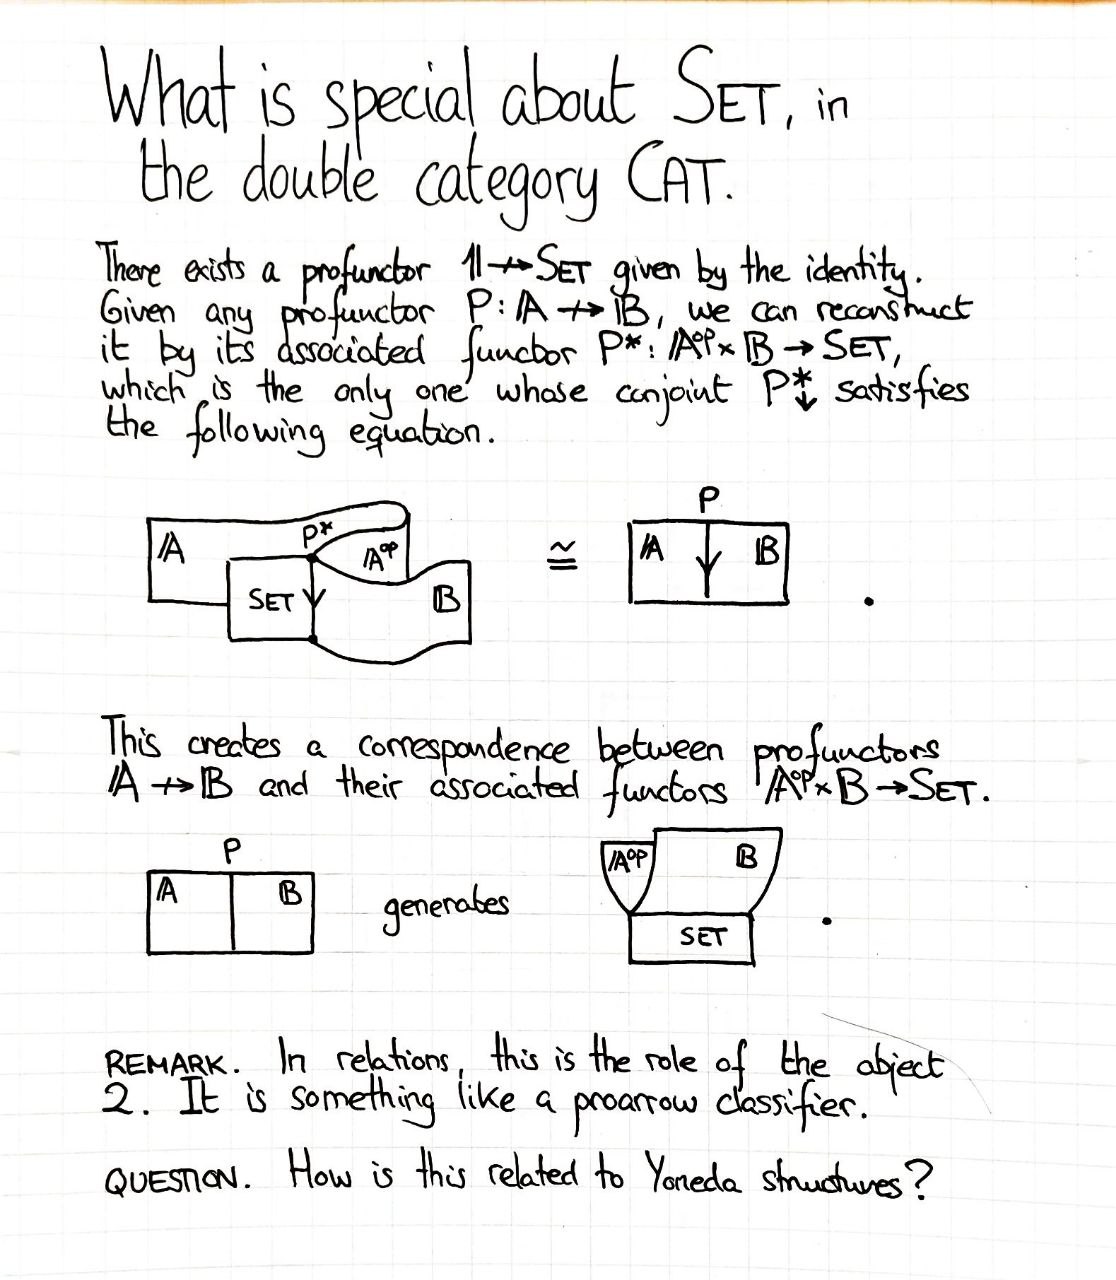 What is special about SET, in
the double category CAT.
There exists a profunctor 𝟙⇸SET given by the identity.
Given any profunctor P: 𝔸 ⇸ 𝔹, we can reconstruct
it by its associated functor P*: 𝔸ᵒᵖ × 𝔹 → SET,
which is the only one whose conjoint P*↓ satisfies
the following equation.
P
𝔸 P* 𝔸ᵒᵖ ≅ 𝔸 𝔹
SET 𝔹 .
This creates a correspondence between profunctors
𝔸 ⇸ 𝔹 and their associated functors 𝔸ᵒᵖ × 𝔹 → SET.
P
𝔸 𝔹 generates 𝔸ᵒᵖ 𝔹
SET .
REMARK. In relations, this is the role of the object
2. It is something like a proarrow classifier.
QUESTION. How is this related to Yoneda structures?